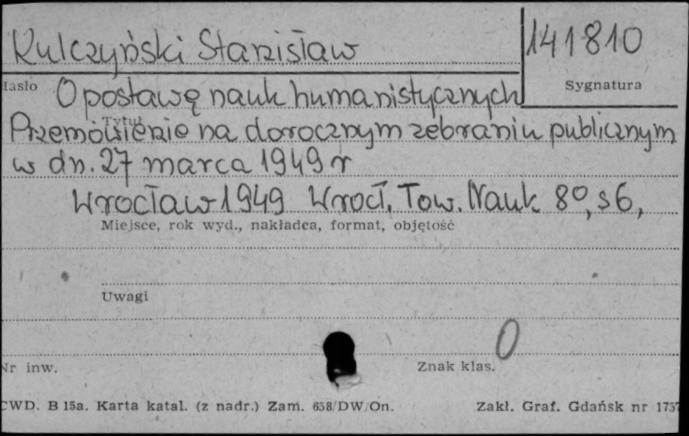 Kulczyński Stanisław
141810
Hasło
Sygnatura
O postawę nauk humanistycznych
Tytuł
Przemówienie na dorocznym zebraniu publicznym
w dn. 27 marca 1949 r
Wrocław 1949 Wrocł. Tow. Nauk 8º, s 6,
Miejsce, rok wyd., nakładca, format, objętość
Uwagi
0
Nr inw.
Znak klas.
CWD. B 15a. Karta katal. (z nadr.) Zam. 658/DW/On.
Zakł. Graf. Gdańsk nr 1757